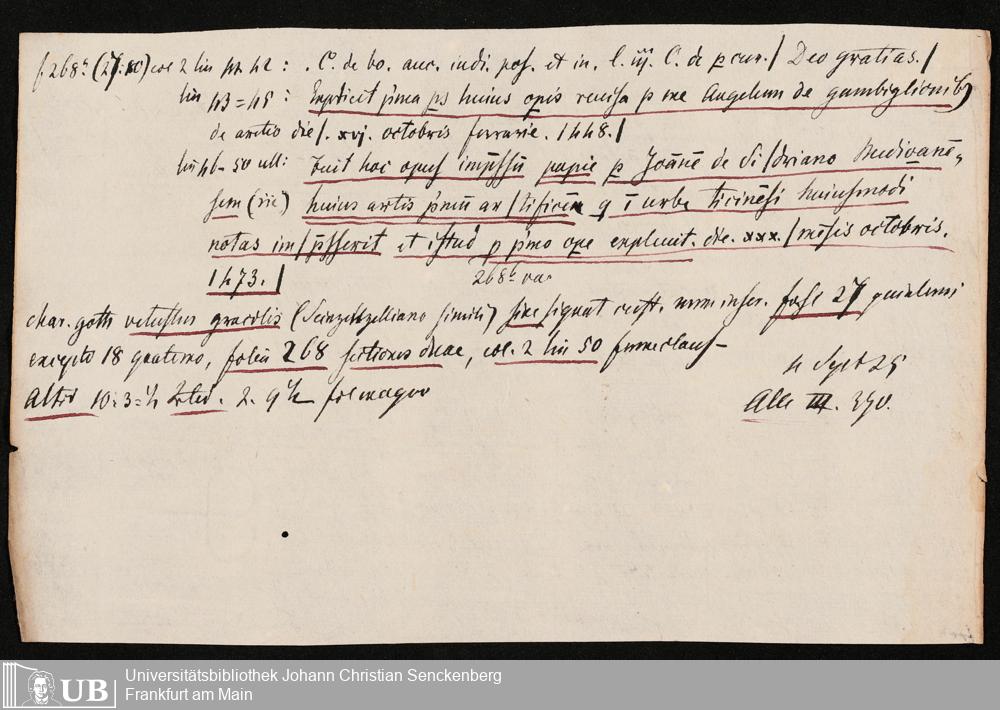 f. 268b (27: 10) col 2 lin 42 : . C. de bo. auc. iudi. pos. et in. l. iij. C. de pcur. / Deo gratias. /
lin 43=45 : Explicit p'ma ps huius opis reuisa p me Angelum de gambiglionib
de aretio die /. xvj. octobris ferrarie. 1448. /
lin 46-50 ult: Fuit hoc opus impssu papie p Joāne de Si / driano Mediolanē-
sem (sic) huius artis p'mū ar / tificem q ī urbe ticinēsi huiusmodi
notas im / psserit et istud p p'mo ope expleuit. die. xxx. / mēsis octobris.
1473. /
268b va
char. goth vetustus gracilis ( simili) sine signat cust. num inser. fasc 27
excepto 18 quaterno, foliu 268 sectiones duae, col. 2 lin 50
altit 10: 3=4 latid. 2. fol magno
4 Sept 25
Alle III. 370.
Universitätsbibliothek Johann Christian Senckenberg
UB Frankfurt am Main